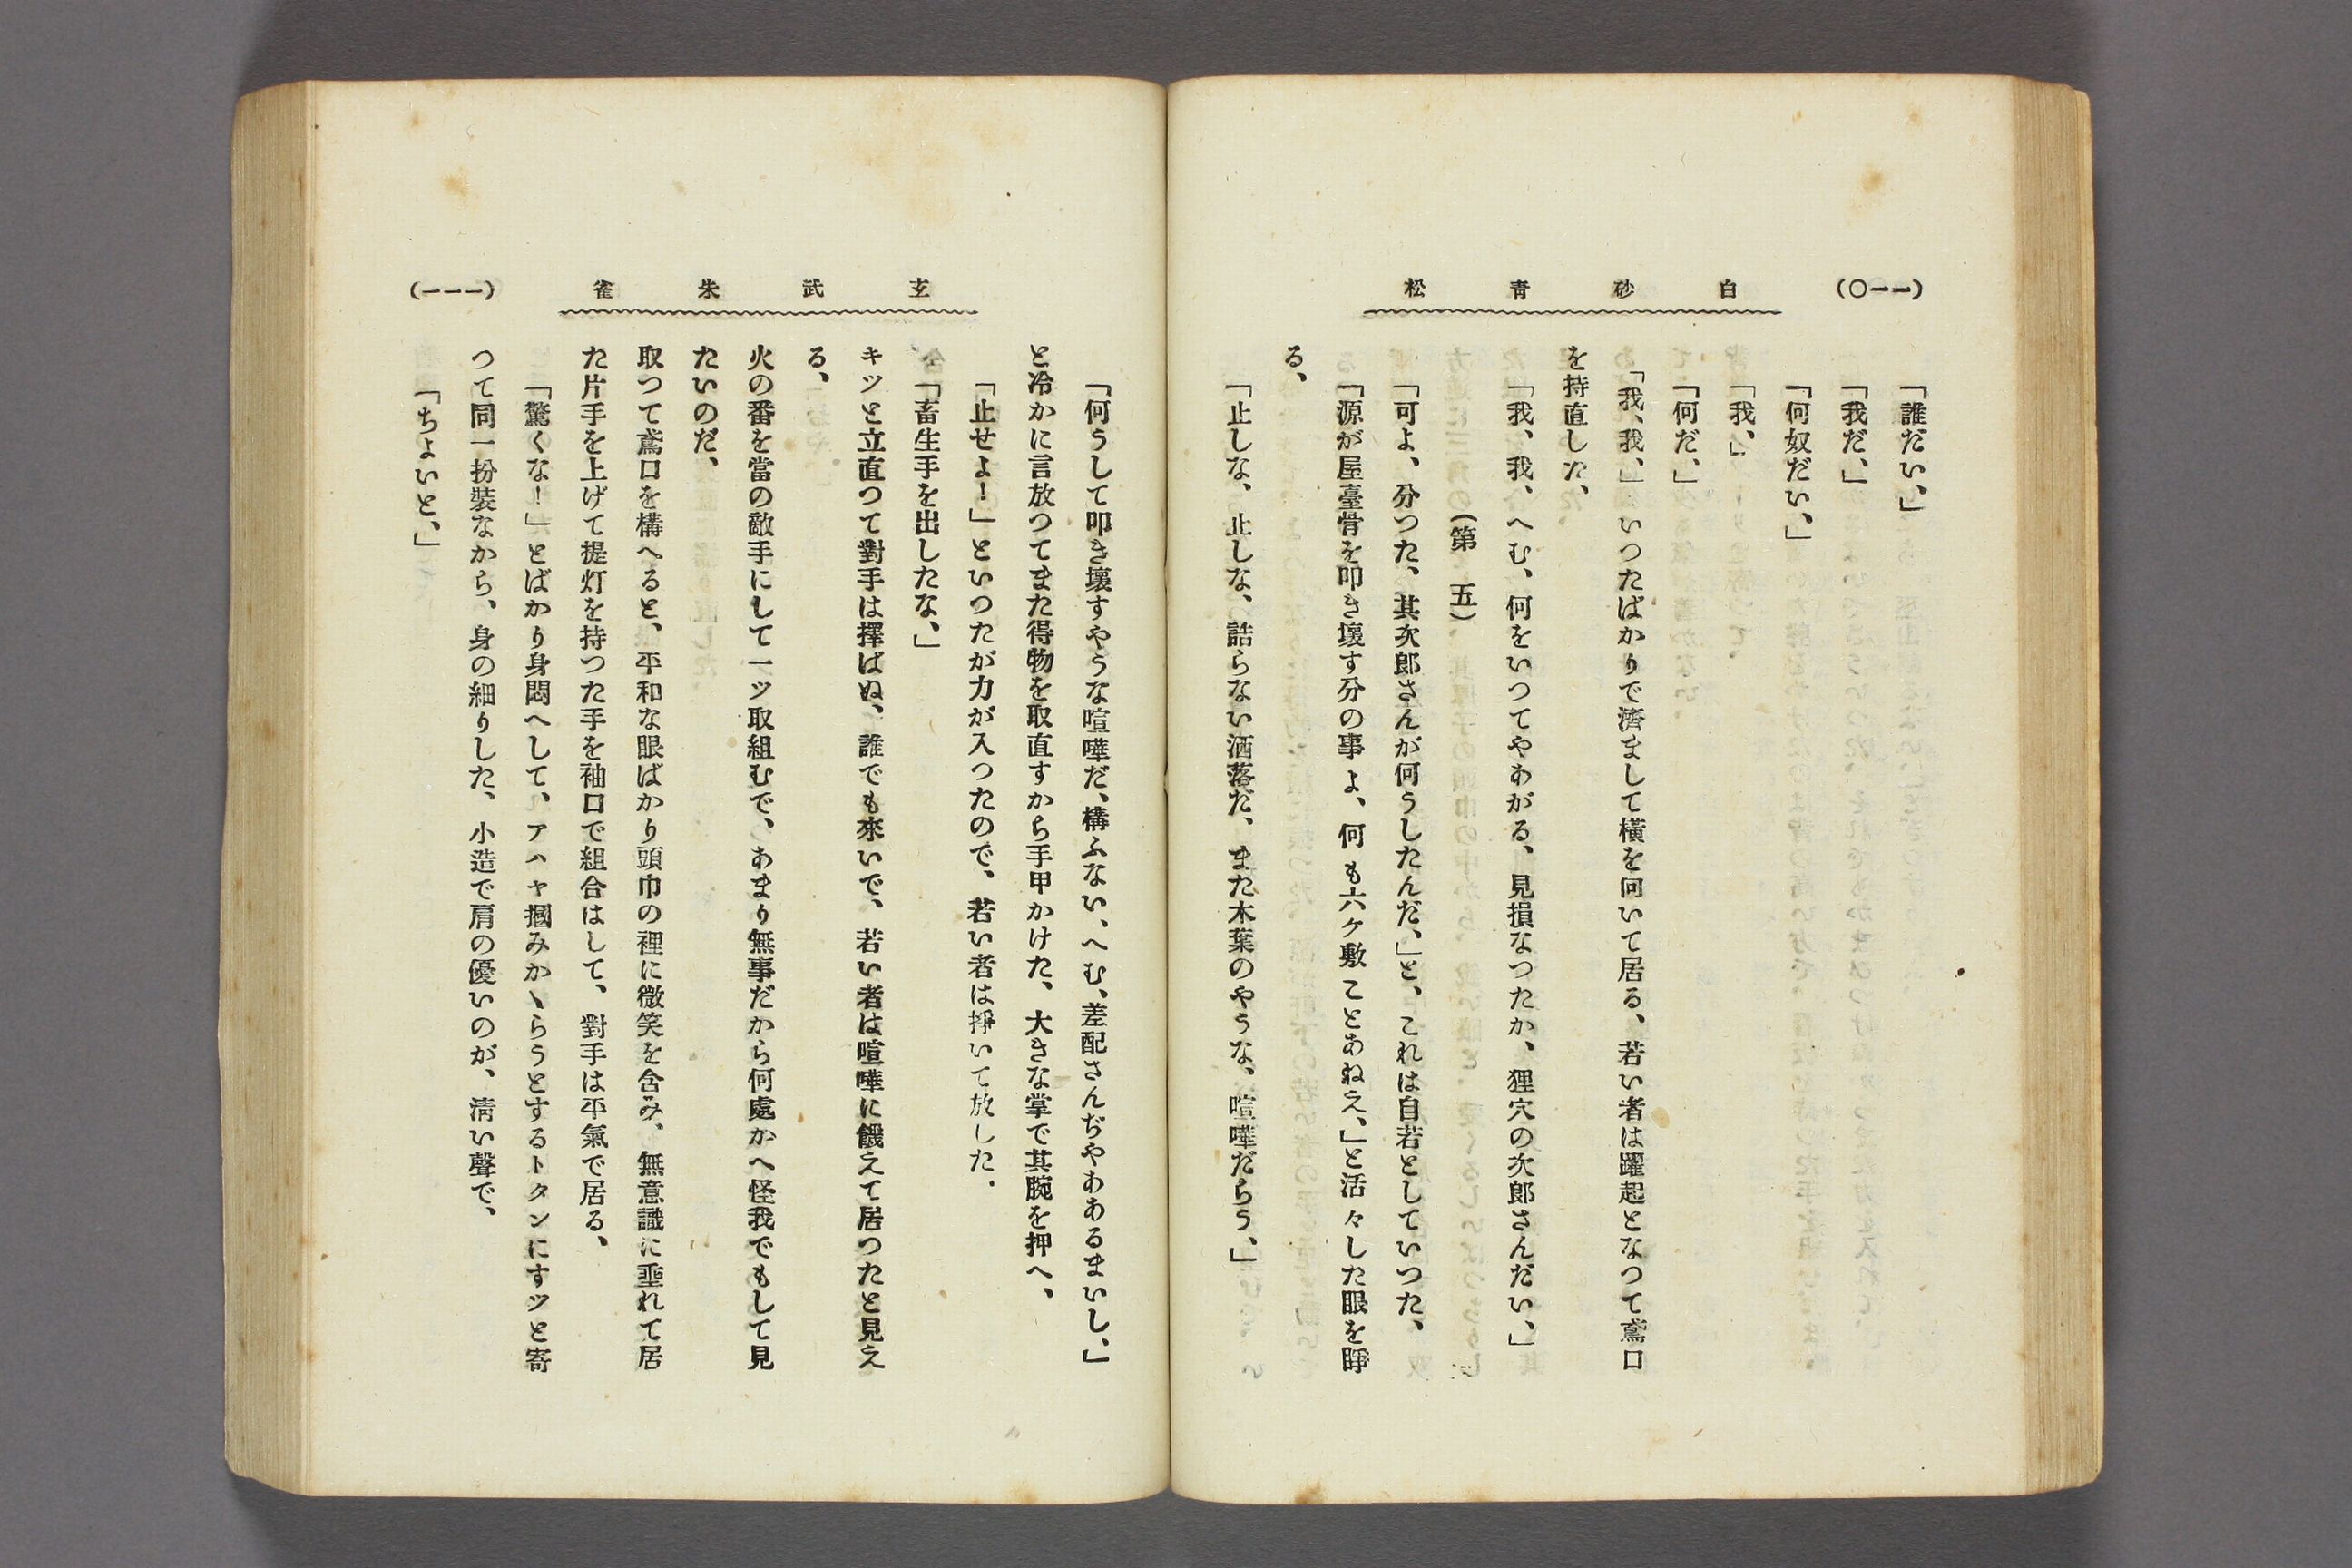 （一一〇）
白砂青松
「誰だい、」
「我だ、」
「何奴だい、」
「我、」
「何だ、」
「我、我、」いつたばかりで濟まして橫を向いて居る、若い者は躍起となつて鳶口
を持直した、
（第五）
「我、我、へむ、何をいつてやあがる、見損なつたか、狸穴の次郎さんだい、」
「可よ、分つた、其次郎さんが何うしたんだ、」と、これは自若としていつた、
「源が屋臺骨を叩き壞す分の事よ、何も六ケ敷ことあねえ、」と活々した眼を睜
る、
「止しな、止しな、詰らない洒落だ、また木葉のやうな、喧嘩だらう、」
玄武朱雀
（一一一）
「何うして叩き壞すやうな喧嘩だ、構ふない、へむ、差配さんぢやああるまいし、」
と冷かに言放つてまた得物を取直すから手甲かけた、大きな掌で其腕を押へ、
「止せよ！」といつたが力が入つたので、若い者は掙いて放した．
「畜生手を出したな、」
キツと立直つて對手は擇ばぬ、誰でも來いで、若い者は喧嘩に餓えて居つたと見え
る、
火の番を當の敵手にして一ツ取組むで、あまり無事だから何處かへ怪我でもして見
たいのだ、
取つて鳶口を構へると、平和な眼ばかり頭巾の裡に微笑を含み、無意識に埀れて居
た片手を上げて提灯を持つた手を袖口で組合はして、對手は平氣で居る、
「驚くな！」とばかり身悶へして、アハヤ摑みかゝらうとするトタンにすツと寄
つて同一扮裝なから、身の細りした、小造で肩の優いのが、淸い聲で、
「ちよいと、」